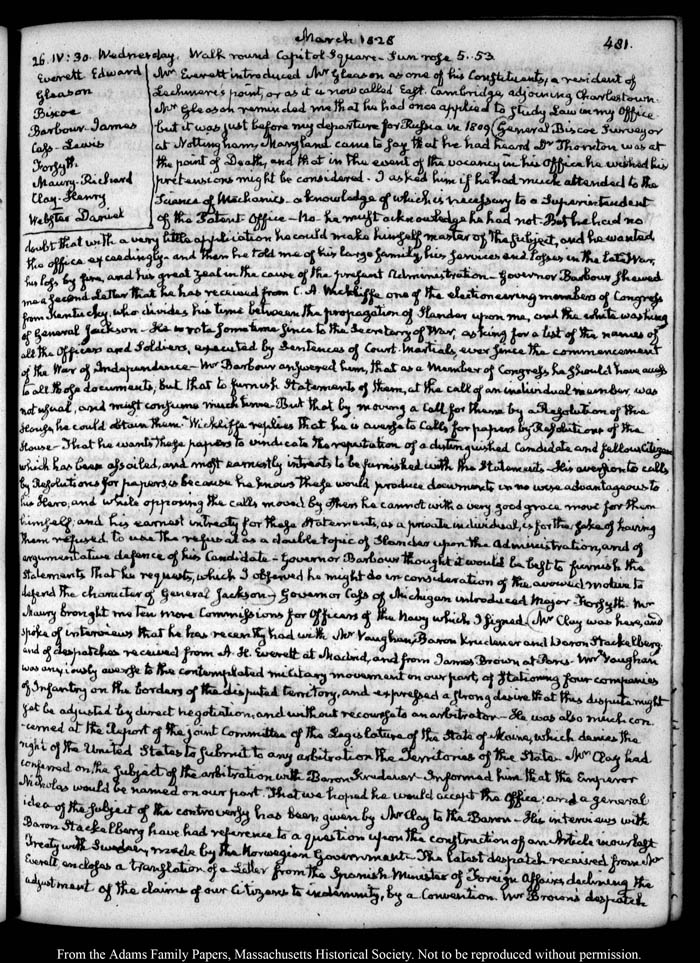 March 1828
481.
26. IV:30. Wednesday. Walk round Capitol Square - Sun rose 5..53
Everett Edward
Gleason
Biscoe
Barbour. James
Cass. Lewis
Forsyth.
Maury. Richard
Clay. Henry
Webster Daniel
Mr Everett introduced Mr Gleason as one of his Constituents, a resident of
Lechmere's point, or as it is now called East. Cambridge, adjoining Charlestown.
Mr Gleason reminded me that he had once applied to study Law in my Office
but it was just before my departure for Russia in 1809 (General Biscoe Surveyor
at Nottingham, Maryland came to say that he had heard Dr Thornton was at
the point of Death, and that in the event of the vacancy in his Office he wished his
pretensions might be considered. I asked him if he had much attended to the
Science of Mechanics. a knowledge of which is necessary to a Superintendent
of the Patent Office - No. he must acknowledge he had not. But he had no
doubt that with a very little application he could make himself master of the subject, and he wanted
the office exceedingly - and then he told me of his large family, his services and losses in the late War,
his loss by fire, and his great zeal in the cause of the present Administration - Governor Barbour shewed
me a second Letter that he has received from C. A. Wickliffe one of the electioneering members of Congress
from Kentucky. who divides his time between the propagation of slander upon me, and the white washing
of General Jackson - He wrote sometime since to the Secretary of War, asking for a list of the names of
all the Officers and Soldiers, executed by Sentences of Court. Martials, ever since the commencement
of the War of Independence - Mr Barbour answered him, that as a Member of Congress he should have access
to all those documents, but that to furnish Statements of them, at the call of an individual member, was
not usual, and might consume much time. But that by moving a call for them by a Resolution of the
House, he could obtain them. Wickliffe replies that he is averse to Calls for papers by Resolutions of the
House - That he wants these papers to vindicate the reputation of a distinguished Candidate and fellow Citizen
which has been assailed, and most earnestly intreats to be furnished with the Statements - His aversion to calls
by Resolutions for papers, is because he knows these would produce documents in no wise advantageous to
his Hero, and while opposing the calls moved by others he cannot with a very good grace move for them
himself, and his earnest intreaty for these Statements, as a private individual, is for the sake of having
them refused to use the refusal as a double topic of slander upon the Administration, and of
argumentative defence of his Candidate - Governor Barbour thought it would be best to furnish the
Statements that he requests, which I observed he might do in consideration of the avowed motive to
defend the character of General Jackson - Governor Cass of Michigan introduced Major Forsyth. Mr
Maury brought me ten more Commissions for Officers of the Navy which I signed (Mr Clay was here, and
spoke of interviews that he has recently had with Mr Vaughan, Baron Krudener and Baron Stackelberg.
and of despatches received from A. H. Everett at Madrid, and from James Brown at Paris. Mr Vaughan
was anxiously averse to the contemplated military movement on our part, of stationing four companies
of Infantry on the borders of the disputed territory, and expressed a strong desire that this dispute might
yet be adjusted by direct negotiation, and without recourse to an arbitrator - He was also much con-
-cerned at the Report of the joint Committee of the Legislature of the State of Maine, which denies the
right of the United States to submit to any arbitration the Territories of the State. Mr Clay had
conferred on the subject of the arbitration with Baron Krudener. Informed him that the Emperor
Nicholas would be named on our part. That we hoped he would accept the Office; and a general
idea of the subject of the controversy has been given by Mr Clay to the Baron - His interviews with
Baron Stackelberg have had reference to a question upon the construction of an Article in our last
Treaty with Sweden, made by the Norwegian Government - The latest despatch received from Mr
Everett encloses a translation of a Letter from the Spanish Minister of Foreign Affairs declining the
adjustment of the claims of our Citizens to indemnity, by a Convention. Mr Brown's despatch
From the Adams Family Papers, Massachusetts Historical Society. Not to be reproduced without permission.